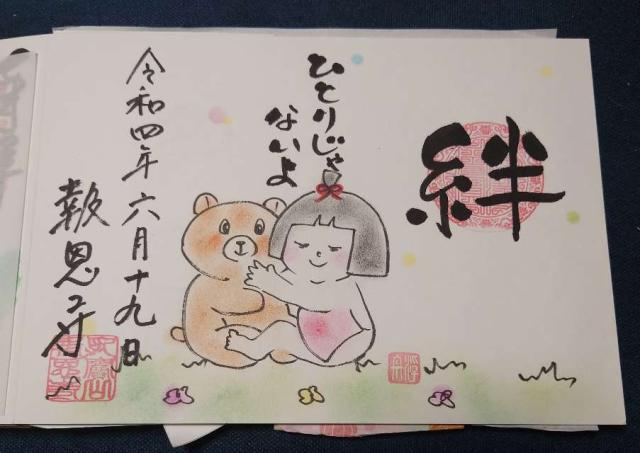 絆
ひとりじゃ
ないよ
令和四年六月十九日
報恩寺